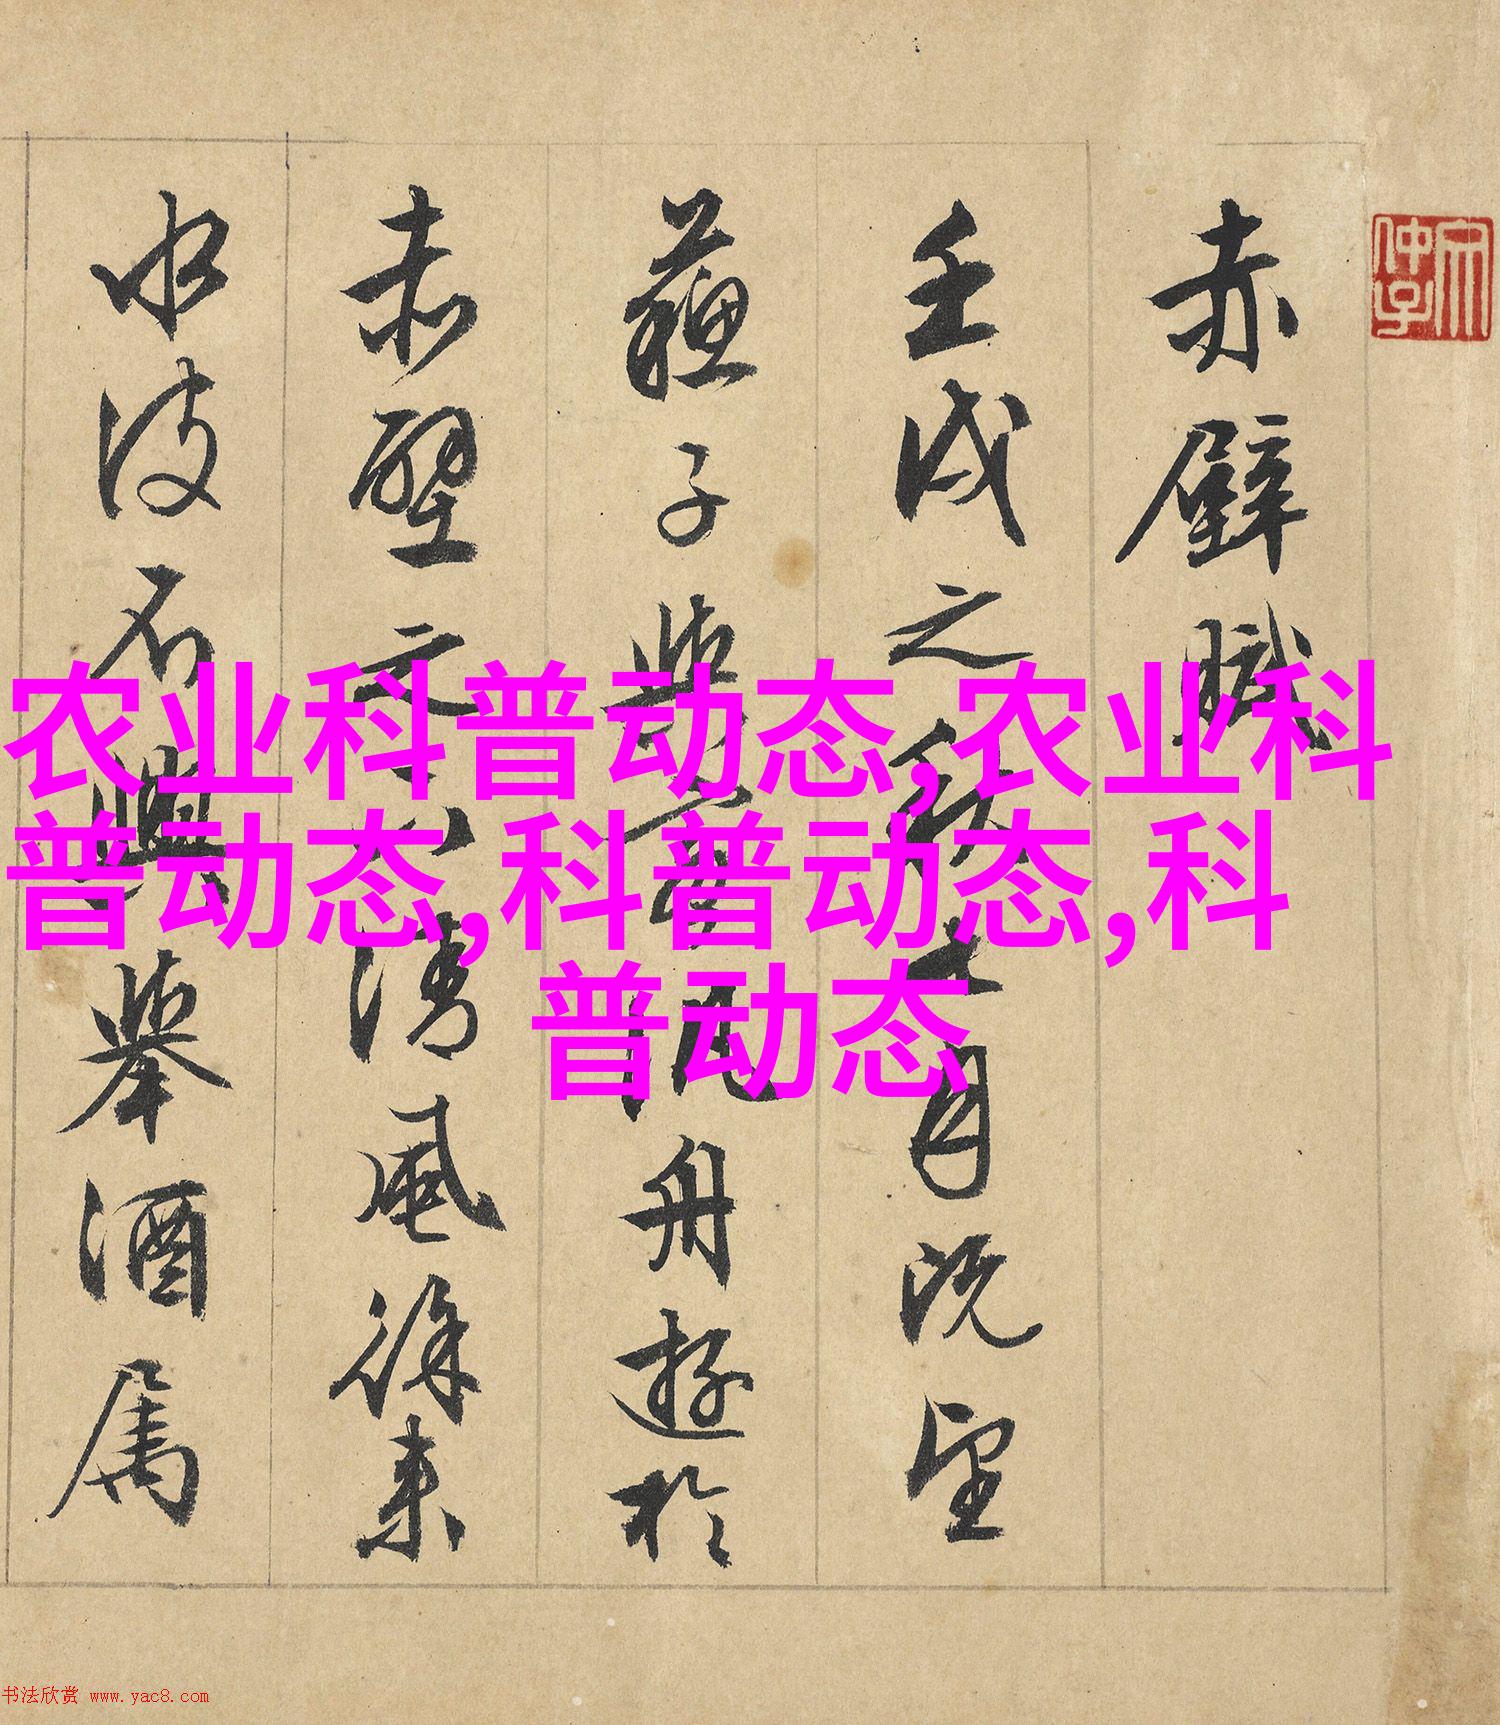 赤壁賦
壬戌之秋七月既望
蘇子與客汎舟遊於
赤壁之下清風徐來
水波不興舉酒屬
农业科普动态,农业科
普动态,科普动态,科
普动态
书法欣赏 www.yac8.com